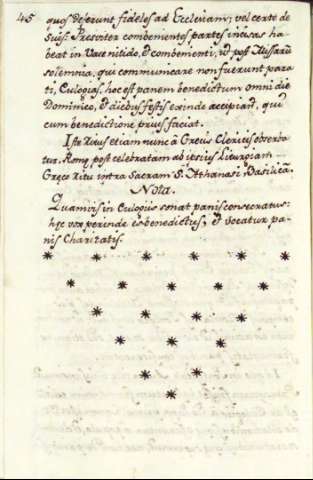 45
quos deferunt fideles ad Ecclesiam; vel certe de
suis. Presbiter convenientes partes incisas ha
beat in Vase nitido, et convenienti, ut post Missarū
solemnia, qui communicare non fuerunt para
ti, Eulogias, hoc est panem benedictum omni die
Dominico, et diebus festis exinde accipiant, qui
cum benedictione prius faciat.
Iste Ritus etiam nunc à Grecis Clericis observa
tur. Romę post celebratam ab ipsis Liturgiam
Gręco Ritu intra Sacram S. Athanasi Basilicā.
Nota.
Quamvis in Eulogiis sonat panis consecratus:
hęc vox perinde è benedictus, et vocatur pa-
nis Charitatis.